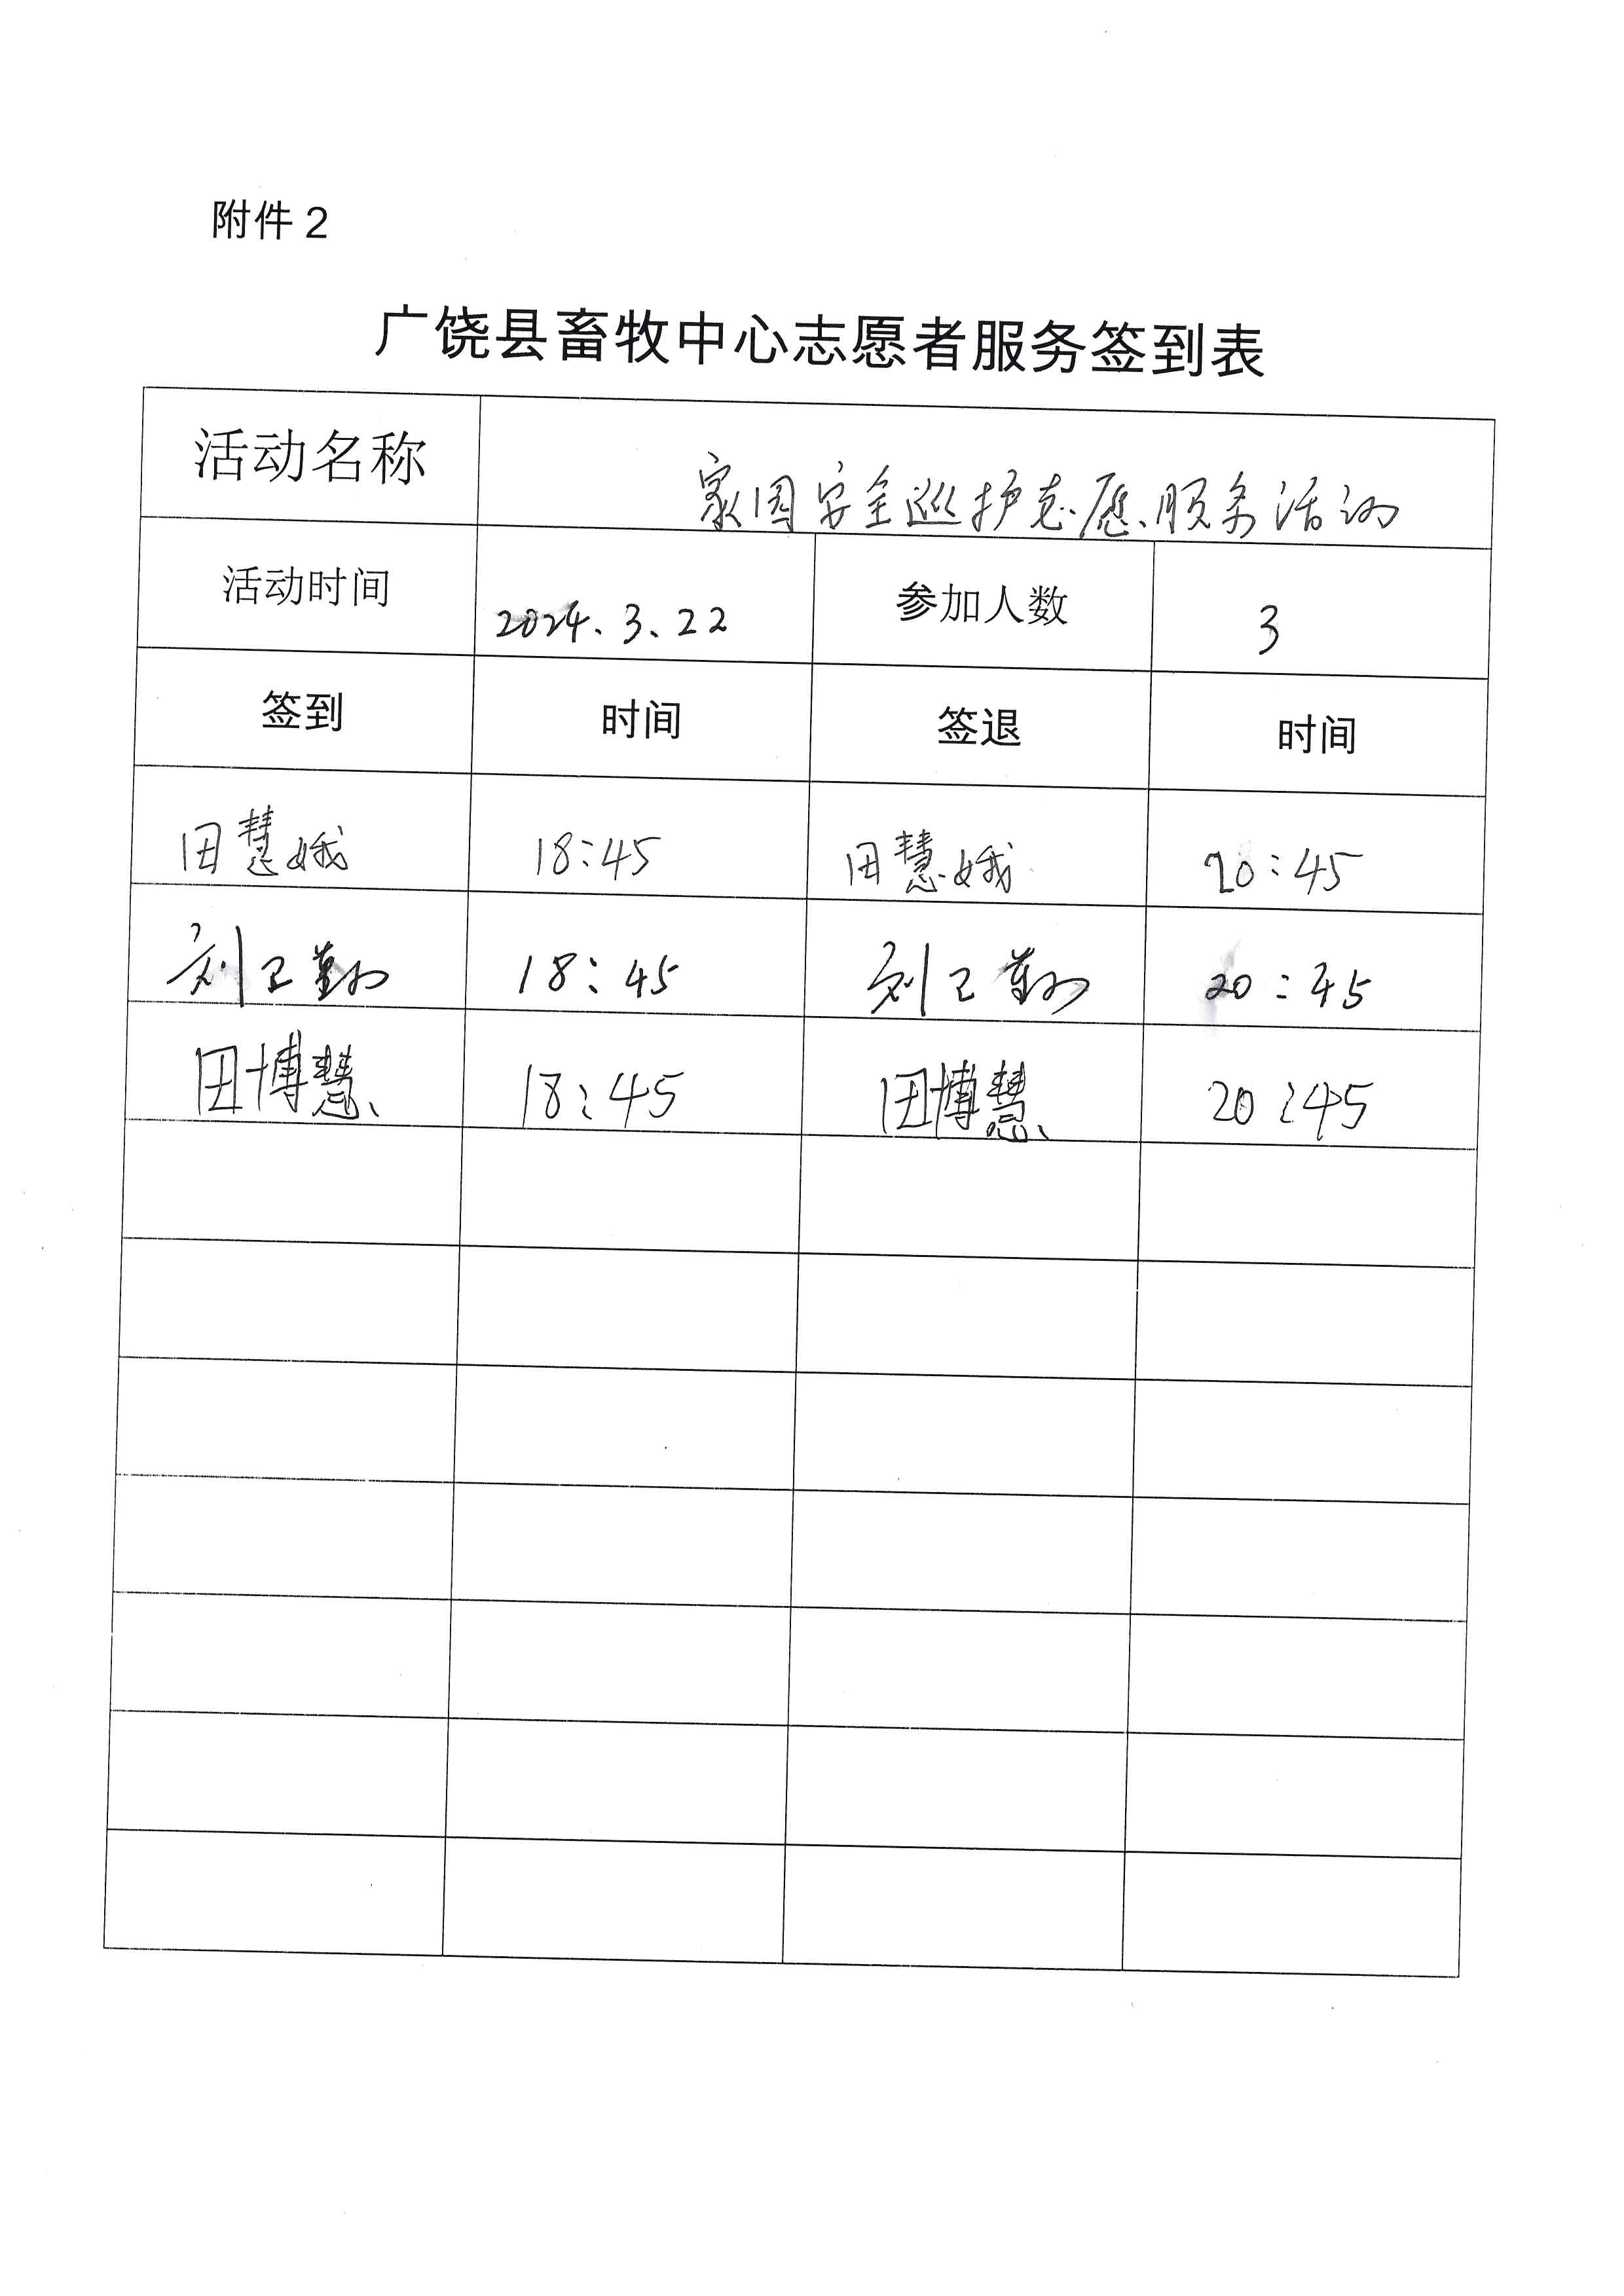 附件2
广饶县畜牧中心志愿者服务签到表
活动名称 家园安全巡护志愿服务活动
活动时间 2024.3.22 参加人数 3
签到 时间 签退 时间
田慧娥 18:45 田慧娥 20:45
刘卫勤 18:45 刘卫勤 20:45
田博慧 18:45 田博慧 20:45